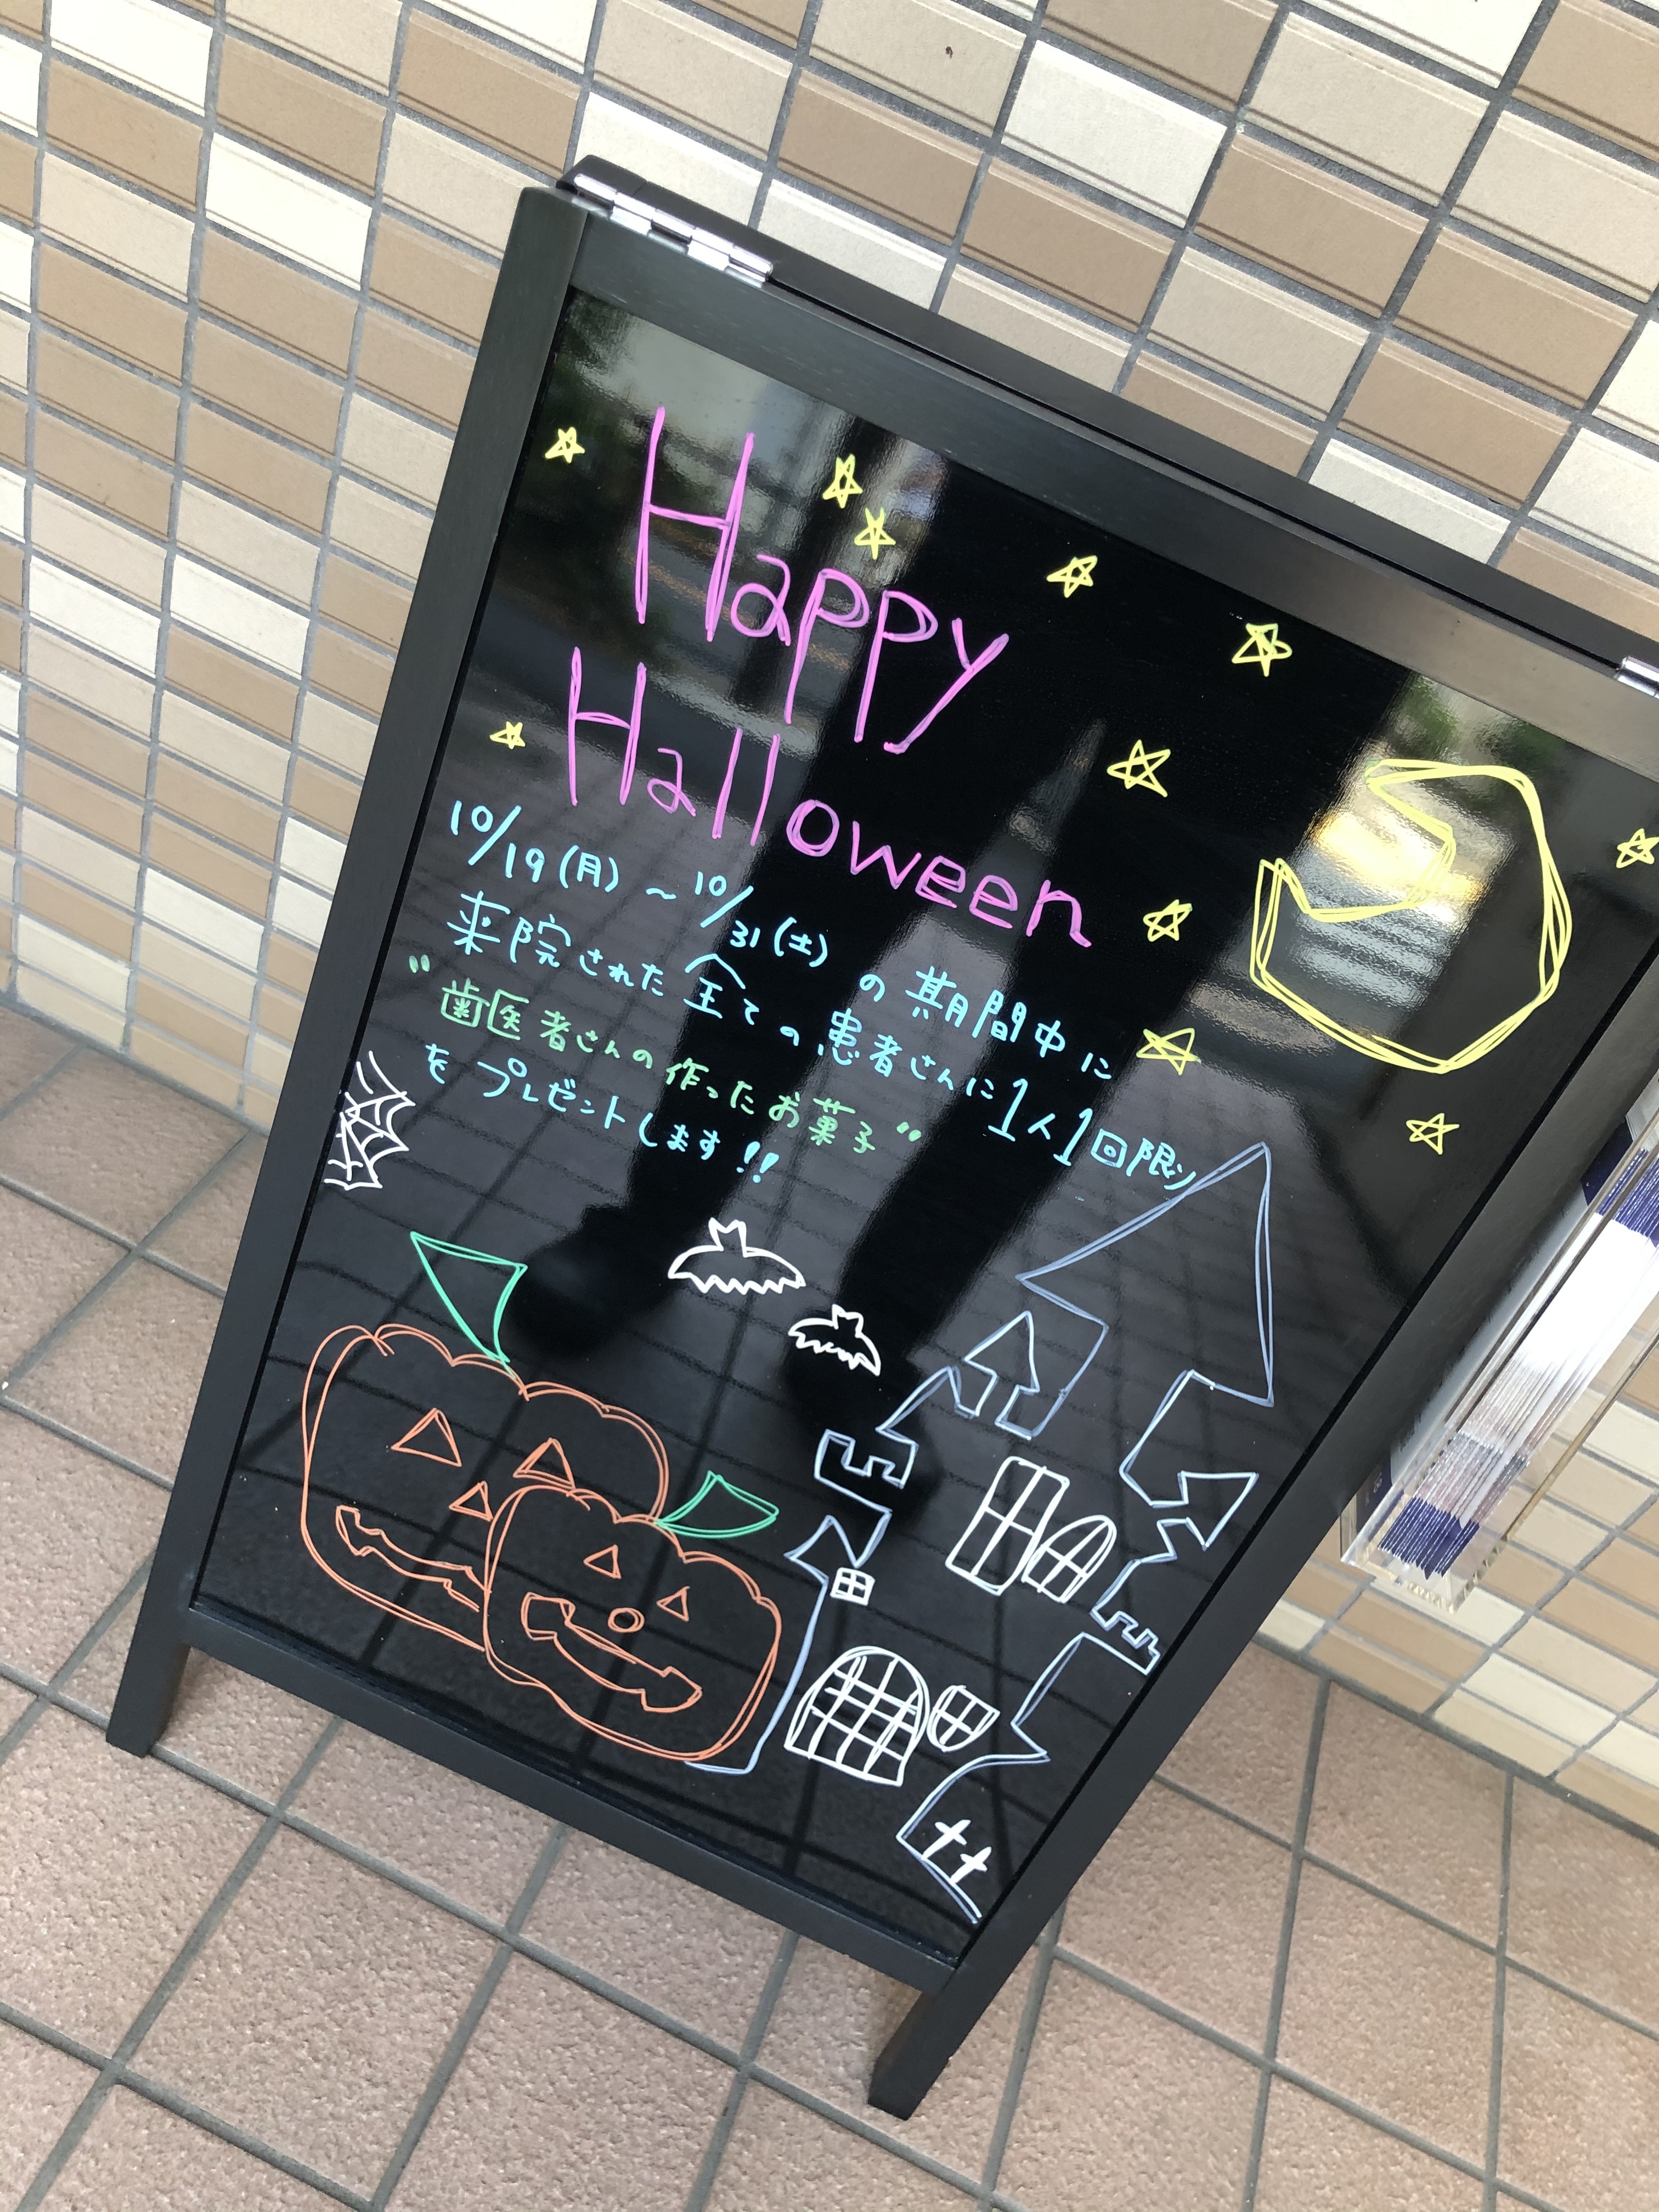 Happy
Halloween
10/19(月)～10/31(土)の期間中に
来院された全ての患者さんに1人1回限り
"歯医者さんの作ったお菓子"
をプレゼントします!!